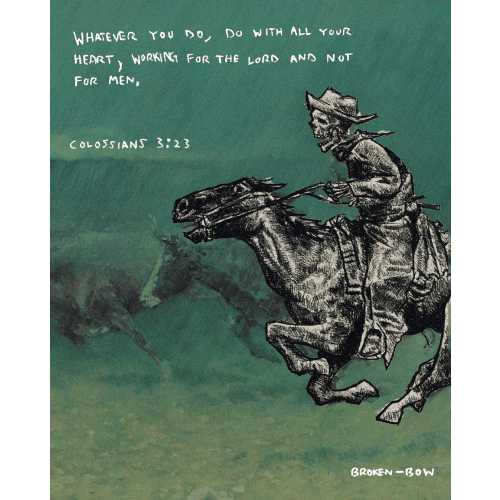 WHATEVER YOU DO, DO WITH ALL YOUR
HEART, WORKING FOR THE LORD AND NOT
FOR MEN.
COLOSSIANS 3:23
BROKEN-BOW